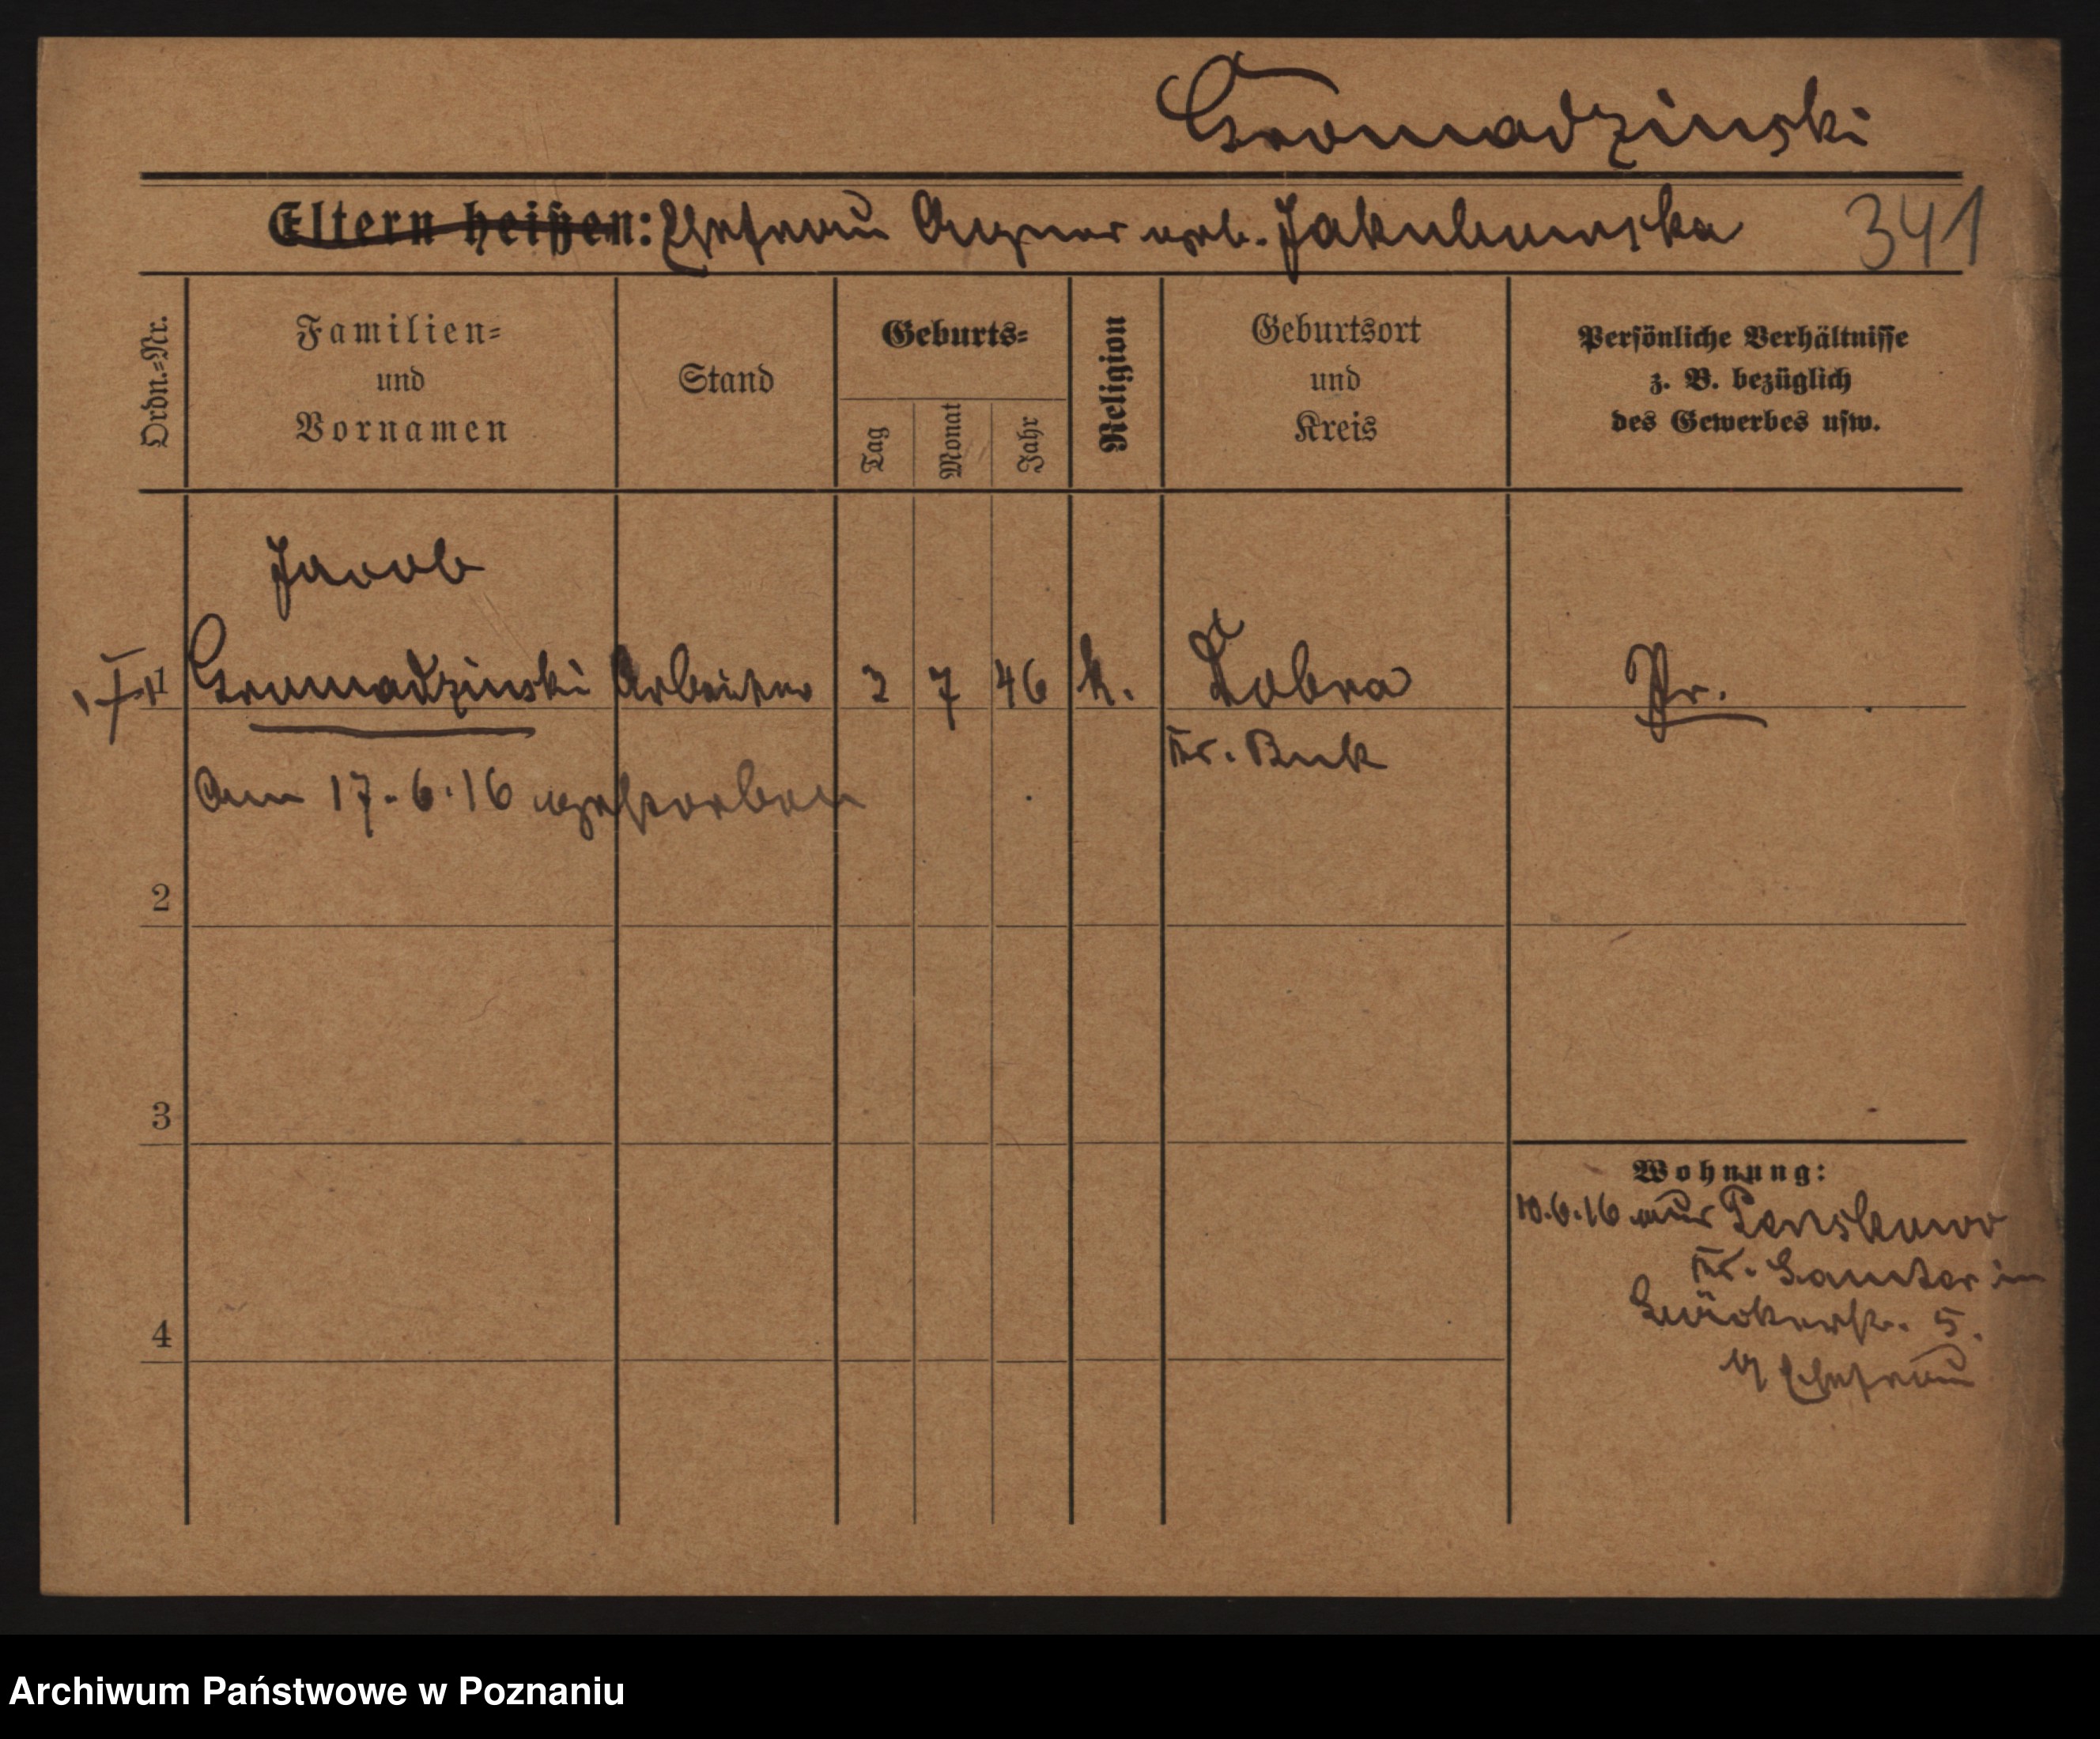 Gromadzinski
Eltern heißen: Ehefrau Agnes geb. Jakubowska 341
Ordn.=Nr.
Familien=
und
Vornamen
Stand
Geburts=
Tag
Monat
Jahr
Religion
Geburtsort
und
Kreis
Persönliche Verhältnisse
z. B. bezüglich
des Gewerbes usw.
Jacob
1 Gromadzinski Arbeiter 2 7 46 k. Dobra Pr.
Kr. Buk
Am 17.6.16 gestorben
2
3
4
Wohnung:
10.6.16 aus
Kr. Samter in
5.
Ehefrau
Archiwum Państwowe w Poznaniu